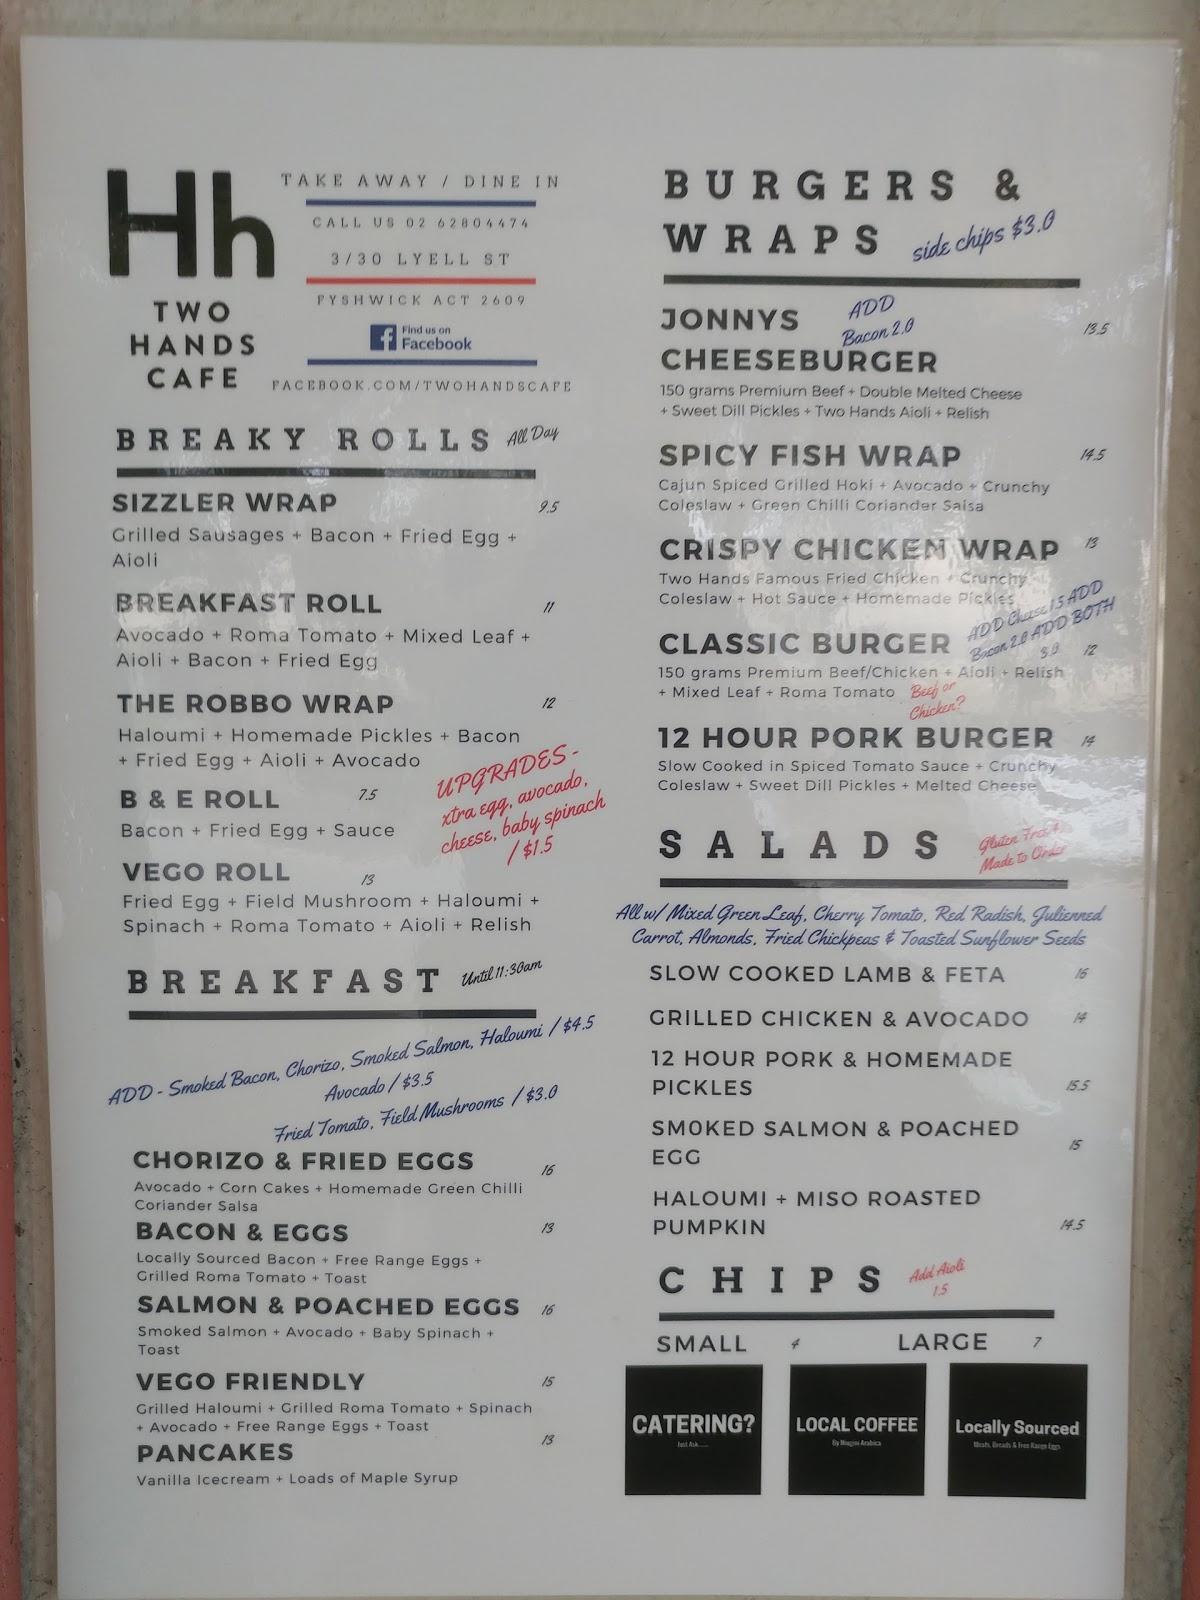 Hh
TWO
HANDS
CAFE
TAKE AWAY / DINE IN
CALL US 02 62804474
3/30 LYELL ST
FYSHWICK ACT 2609
Find us on
Facebook
FACEBOOK.COM/TWOHANDSCAFE
BREAKY ROLLS All Day
SIZZLER WRAP 9.5
Grilled Sausages + Bacon + Fried Egg +
Aioli
BREAKFAST ROLL 11
Avocado + Roma Tomato + Mixed Leaf +
Aioli + Bacon + Fried Egg
THE ROBBO WRAP 12
Haloumi + Homemade Pickles + Bacon
+ Fried Egg + Aioli + Avocado
B & E ROLL 7.5
Bacon + Fried Egg + Sauce
UPGRADES -
xtra egg, avocado,
cheese, baby spinach
/ $1.5
VEGO ROLL 13
Fried Egg + Field Mushroom + Haloumi +
Spinach + Roma Tomato + Aioli + Relish
BREAKFAST Until 11:30am
ADD - Smoked Bacon, Chorizo, Smoked Salmon, Haloumi / $4.5
Avocado / $3.5
Fried Tomato, Field Mushrooms / $3.0
CHORIZO & FRIED EGGS 16
Avocado + Corn Cakes + Homemade Green Chilli
Coriander Salsa
BACON & EGGS 13
Locally Sourced Bacon + Free Range Eggs +
Grilled Roma Tomato + Toast
SALMON & POACHED EGGS 16
Smoked Salmon + Avocado + Baby Spinach +
Toast
VEGO FRIENDLY 15
Grilled Haloumi + Grilled Roma Tomato + Spinach
+ Avocado + Free Range Eggs + Toast
PANCAKES 13
Vanilla Icecream + Loads of Maple Syrup
BURGERS &
WRAPS side chips $3.0
JONNYS ADD
Bacon 2.0
13.5
CHEESEBURGER
150 grams Premium Beef + Double Melted Cheese
+ Sweet Dill Pickles + Two Hands Aioli + Relish
SPICY FISH WRAP 14.5
Cajun Spiced Grilled Hoki + Avocado + Crunchy
Coleslaw + Green Chilli Coriander Salsa
CRISPY CHICKEN WRAP 13
Two Hands Famous Fried Chicken + Crunchy
Coleslaw + Hot Sauce + Homemade Pickles
ADD Cheese 1.5 ADD
Bacon 2.0 ADD BOTH
3.0
CLASSIC BURGER 12
150 grams Premium Beef/Chicken + Aioli + Relish
+ Mixed Leaf + Roma Tomato
Beef or
Chicken?
12 HOUR PORK BURGER 14
Slow Cooked in Spiced Tomato Sauce + Crunchy
Coleslaw + Sweet Dill Pickles + Melted Cheese
SALADS
Gluten Free &
Made to Order
All w/ Mixed Green Leaf, Cherry Tomato, Red Radish, Julienned
Carrot, Almonds, Fried Chickpeas & Toasted Sunflower Seeds
SLOW COOKED LAMB & FETA 16
GRILLED CHICKEN & AVOCADO 14
12 HOUR PORK & HOMEMADE
PICKLES 15.5
SM0KED SALMON & POACHED
EGG 15
HALOUMI + MISO ROASTED
PUMPKIN 14.5
CHIPS Add Aioli
1.5
SMALL 4 LARGE 7
CATERING?
Just Ask......
LOCAL COFFEE
Locally Sourced
Meats, Breads & Free Range Eggs